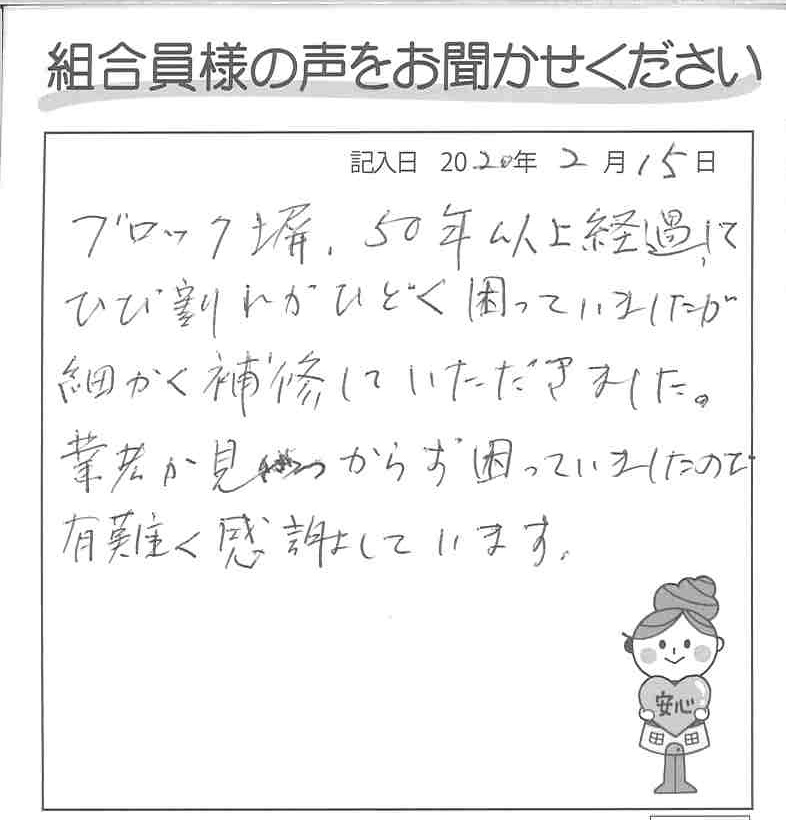 組合員様の声をお聞かせください
記入日 2020年 2月15日
ブロック塀、50年以上経過して
ひび割れがひどく困っていましたが
細かく補修していただきました。
業者が見つからず困っていましたので
有難く感謝しています。
安心